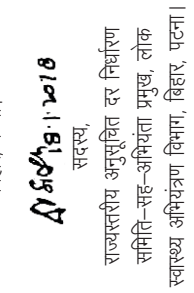 18.1.2018
सदस्य,
राज्यस्तरीय अनुसूचित दर निर्धारण
समिति–सह–अभियंता प्रमुख, लोक
स्वास्थ्य अभियंत्रण विभाग, बिहार, पटना।